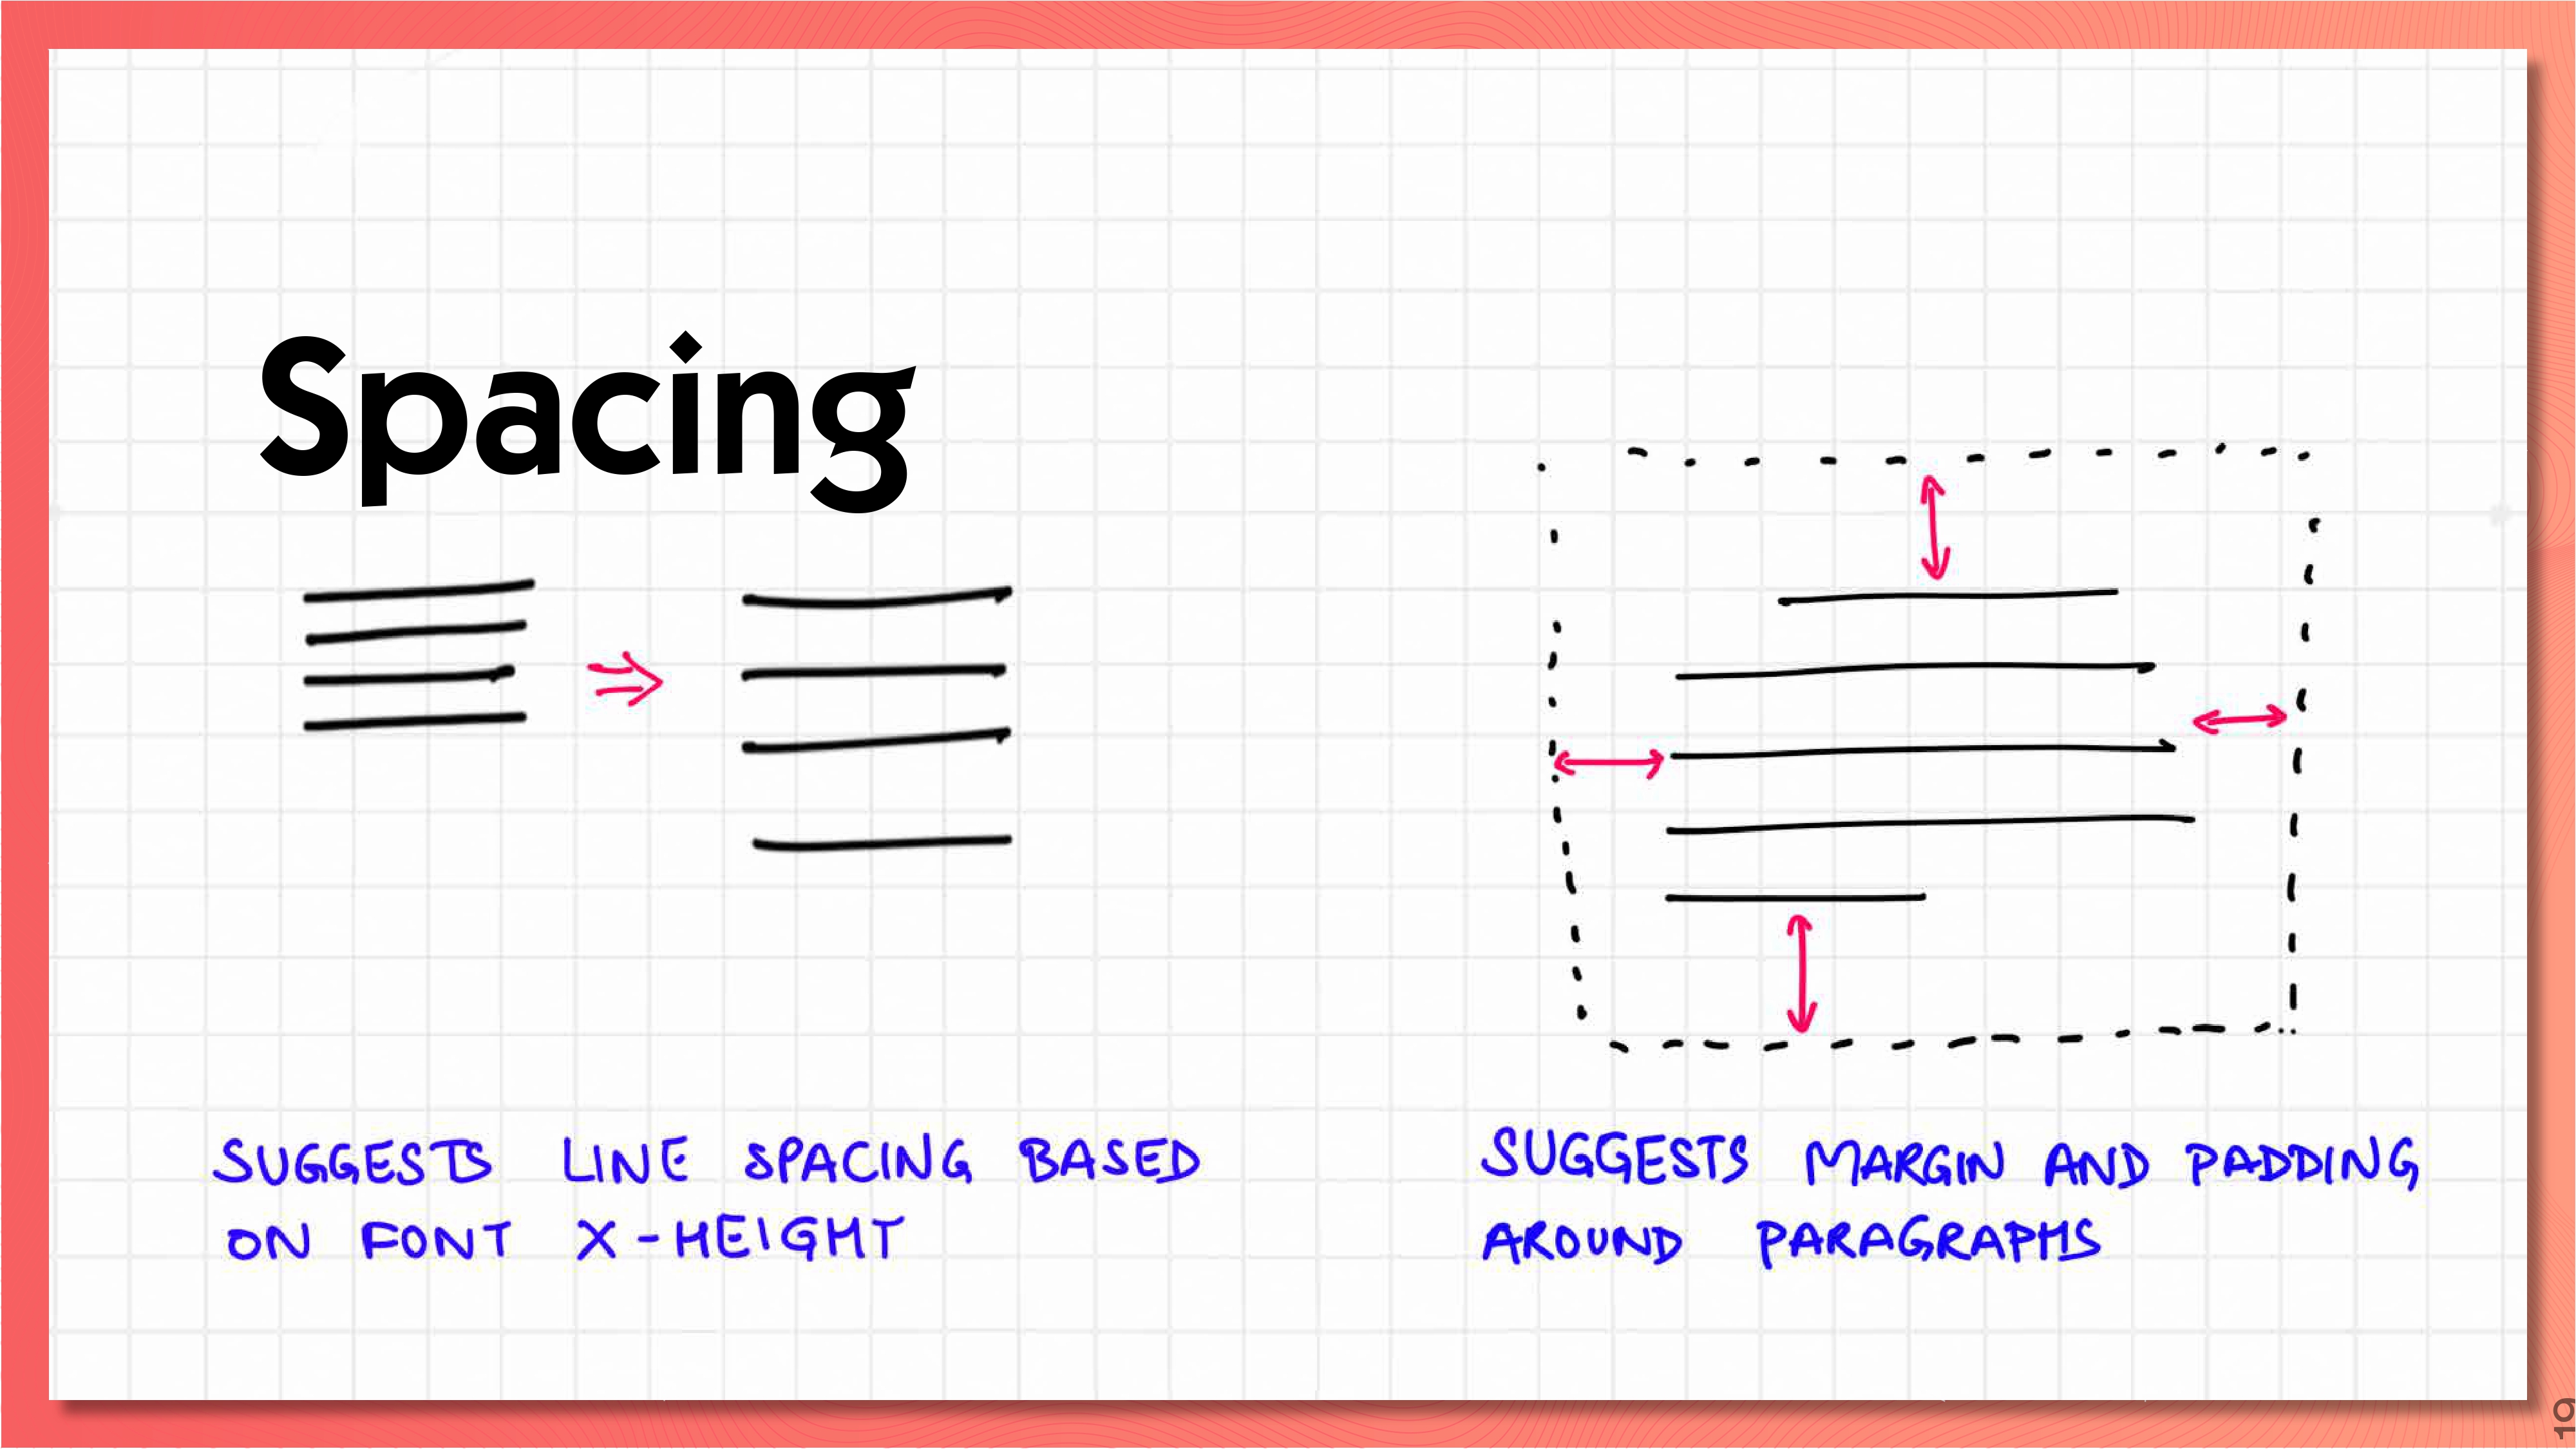 Spacing
SUGGESTS LINE SPACING BASED
ON FONT X-HEIGHT
SUGGESTS MARGIN AND PADDING
AROUND PARAGRAPHS
19